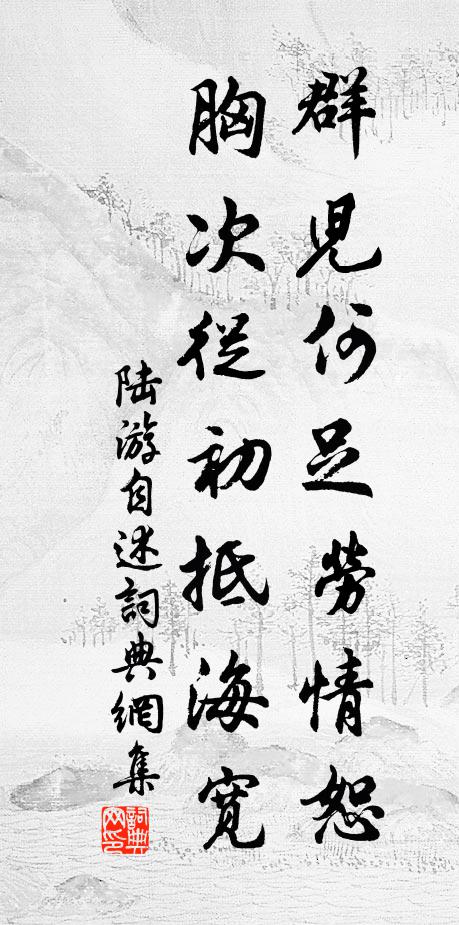 群児何足勞情恕
胸次從初抵海寬
陆游自述詞典網集
詞典網印